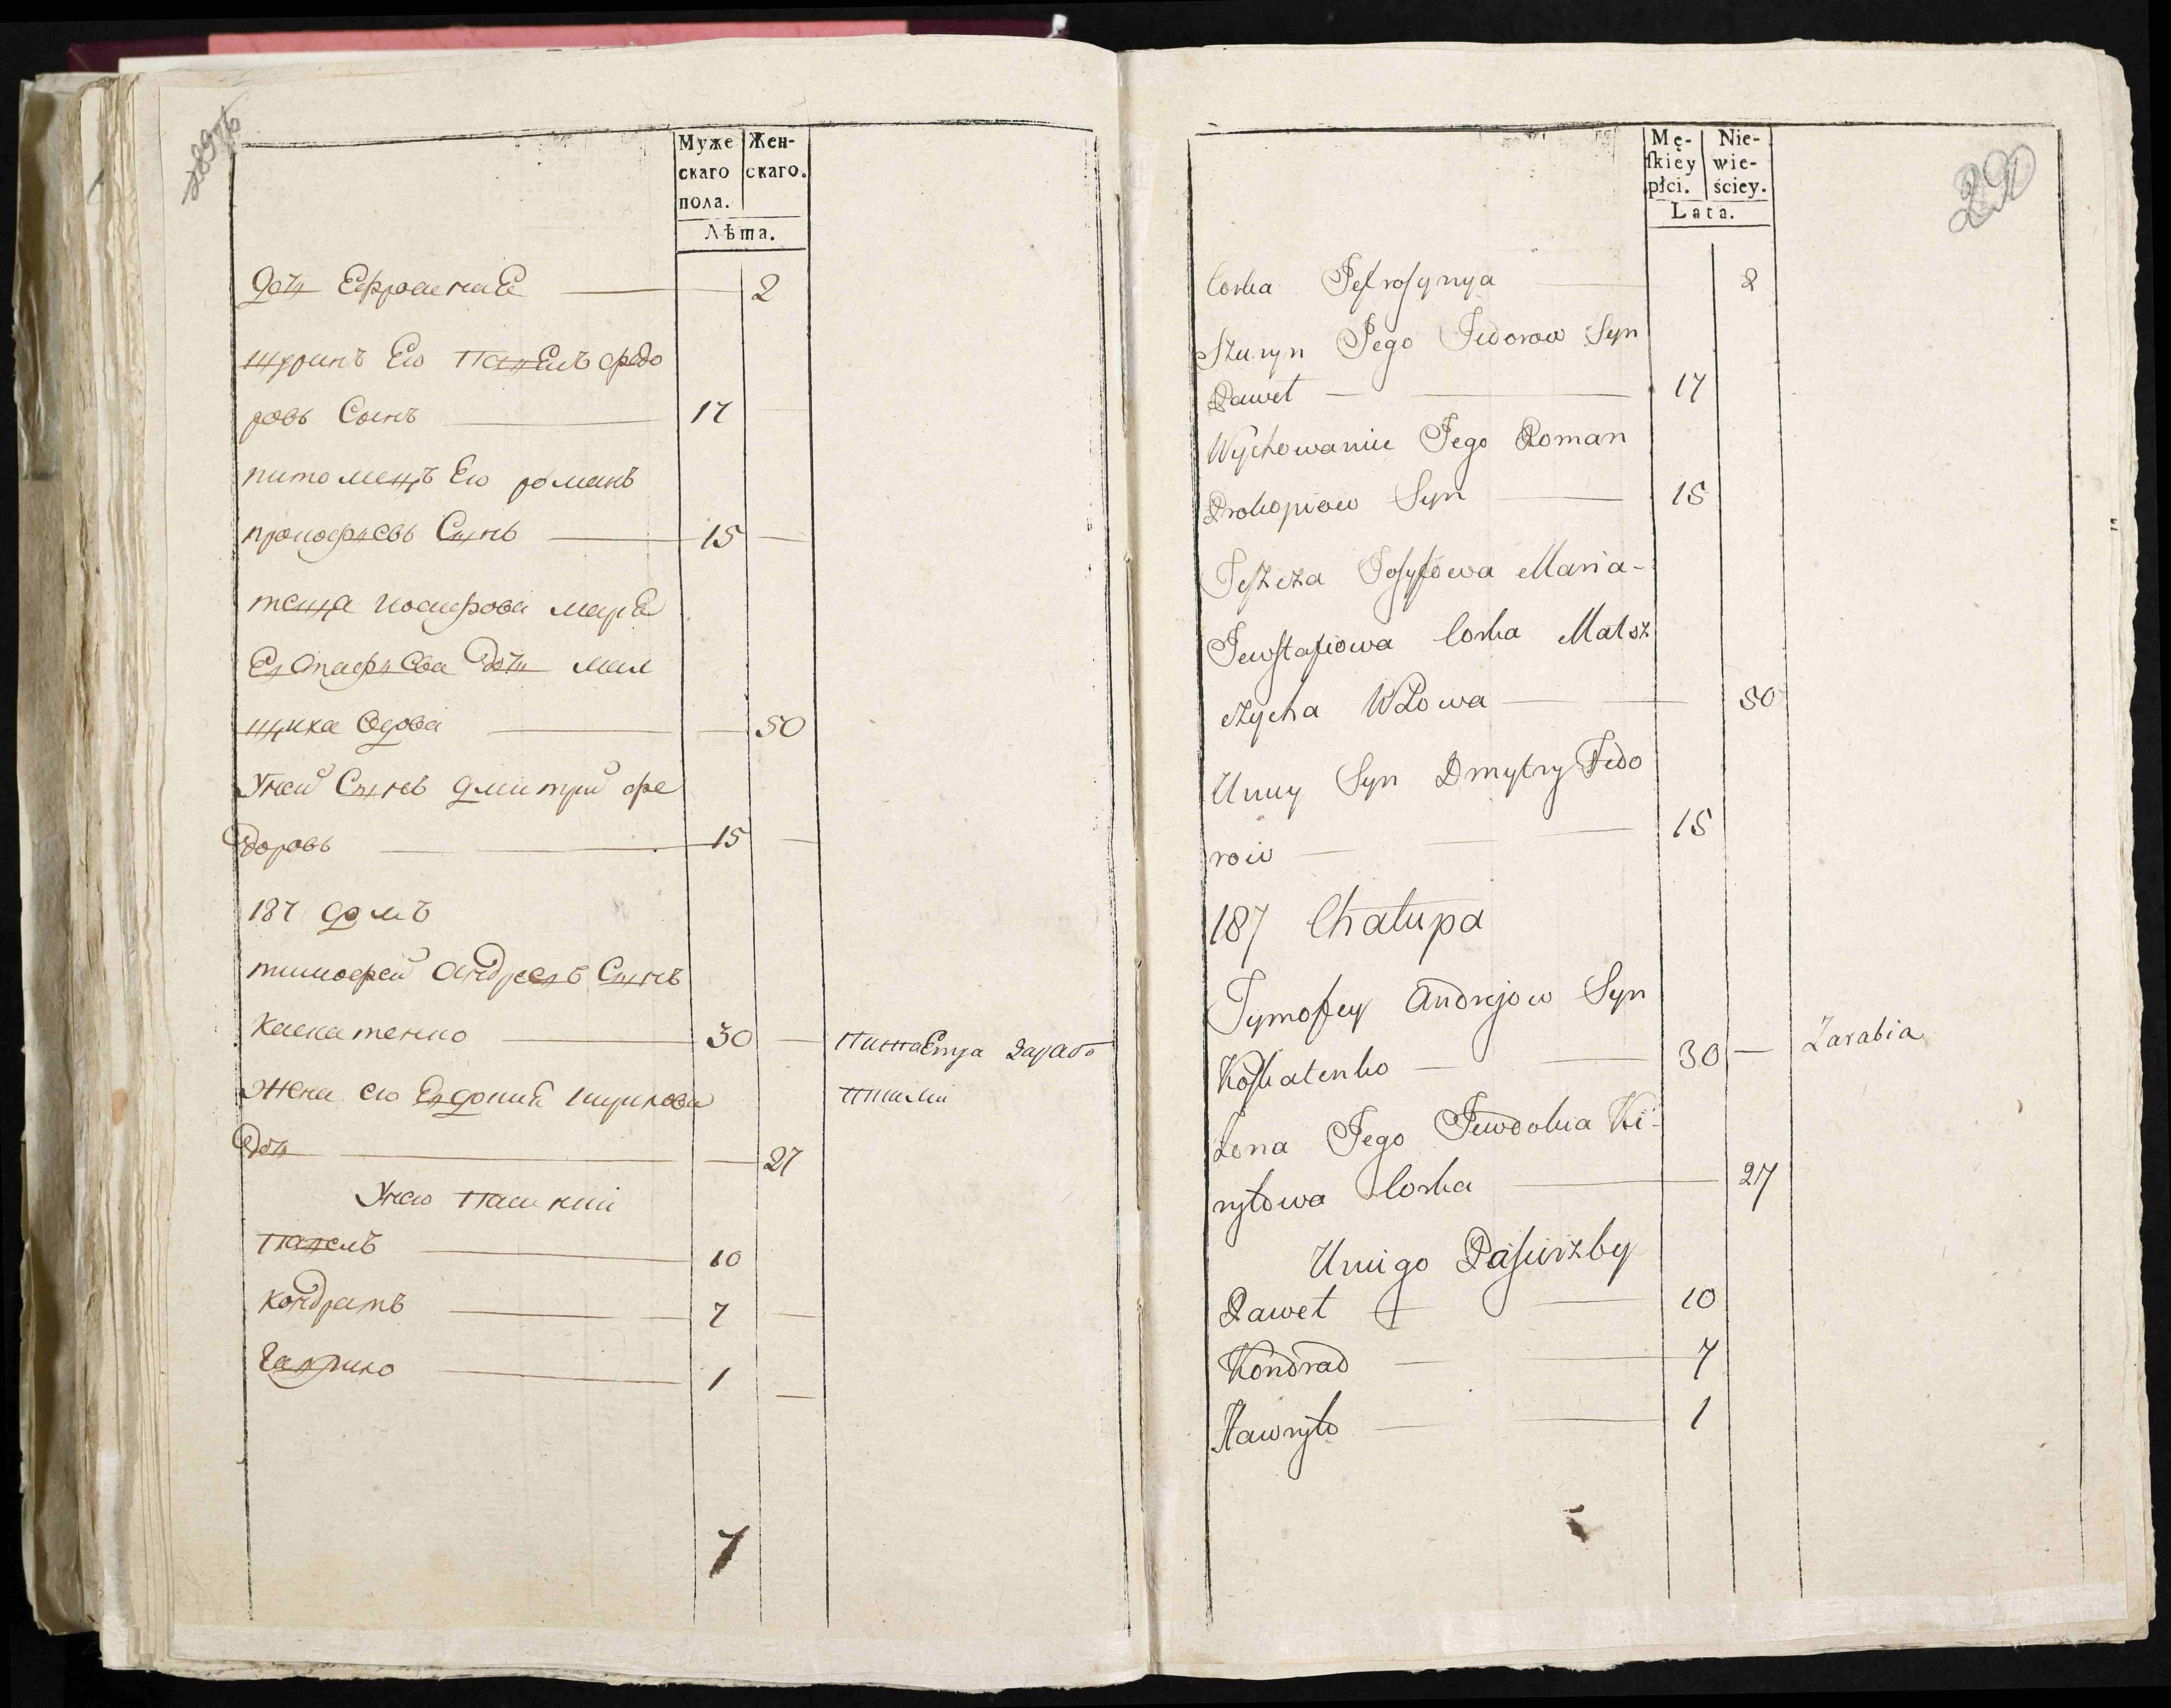 289об
Муже
скаго
пола.
Жен-
скаго.
Лѣта.
Доч Ефросинiя 2
шуринъ Его Павелъ Федо
ровъ Сынъ 17
питомецъ Его романъ
прокофьевъ Сынъ 15
теща иосифова марiя
Евстафьева Доч мал
щиха вдова 50
Унеи Сынъ дмитрий фе
доровъ 15
187 домъ
тимофей андреевъ Сынъ
Каскатенко 30 Питается зарабо
тками
Жена его Евдокия кирилова
Доч 27
Унего Пасинки
Павелъ 10
кондратъ 7
гаврило 1
7
290
Mę-
skiey
płci.
Nie-
wie-
ściey.
Lata.
Corka Jefrosynya 2
Szuryn Jego Fedorow Syn
Paweł 17
Wychowaniec Jego Roman
Prokopiow Syn 15
Teszcza Josyfowa Maria-
Jewstafiowa Corka Malsz
czycha Wdowa 50
Uniey Syn Dmytry Fedo
row 15
187 Chałupa
Tymofey Andrejow Syn
Koskatenko 30 Zarabia
Zona Jego Jewdokia Ki-
ryłowa Corka 27
Uniego Pasierzby
Paweł 10
Kondrad 7
Hawryło 1